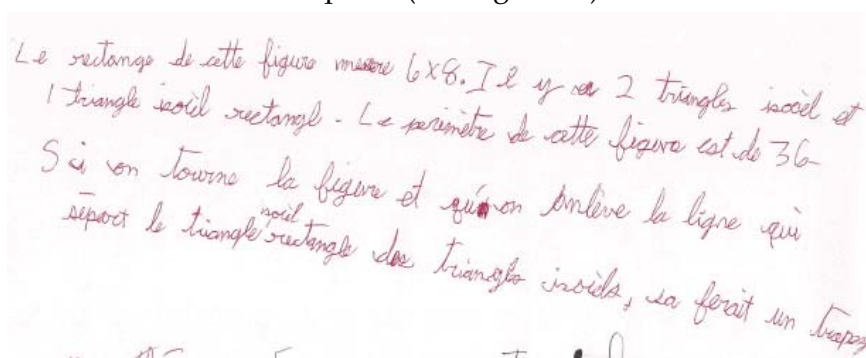 Le rectange de cette figure mesure 6x8. Il y a 2 triangles isoèl et
1 triangle isoèl rectangl - Le perimètre de cette figure est de 36-
Si on tourne la figure et qu'on enlève la ligne qui
sépart le triangle isoèl rectangle des triangles isoèls, sa ferait un trapez